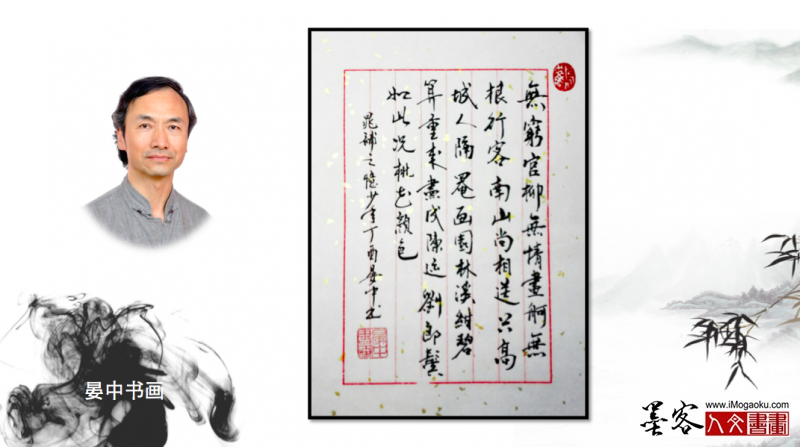 無窮官柳無情畫舸無
根行客南山尚相送只高
城人隔罨画園林溪紺碧
算重来盡成陳迹劉郎鬢
如此况桃花顏色
晁補之憶少年丁酉晏中书
晏中书画
墨客
www.iMogaoku.com
人文書畫